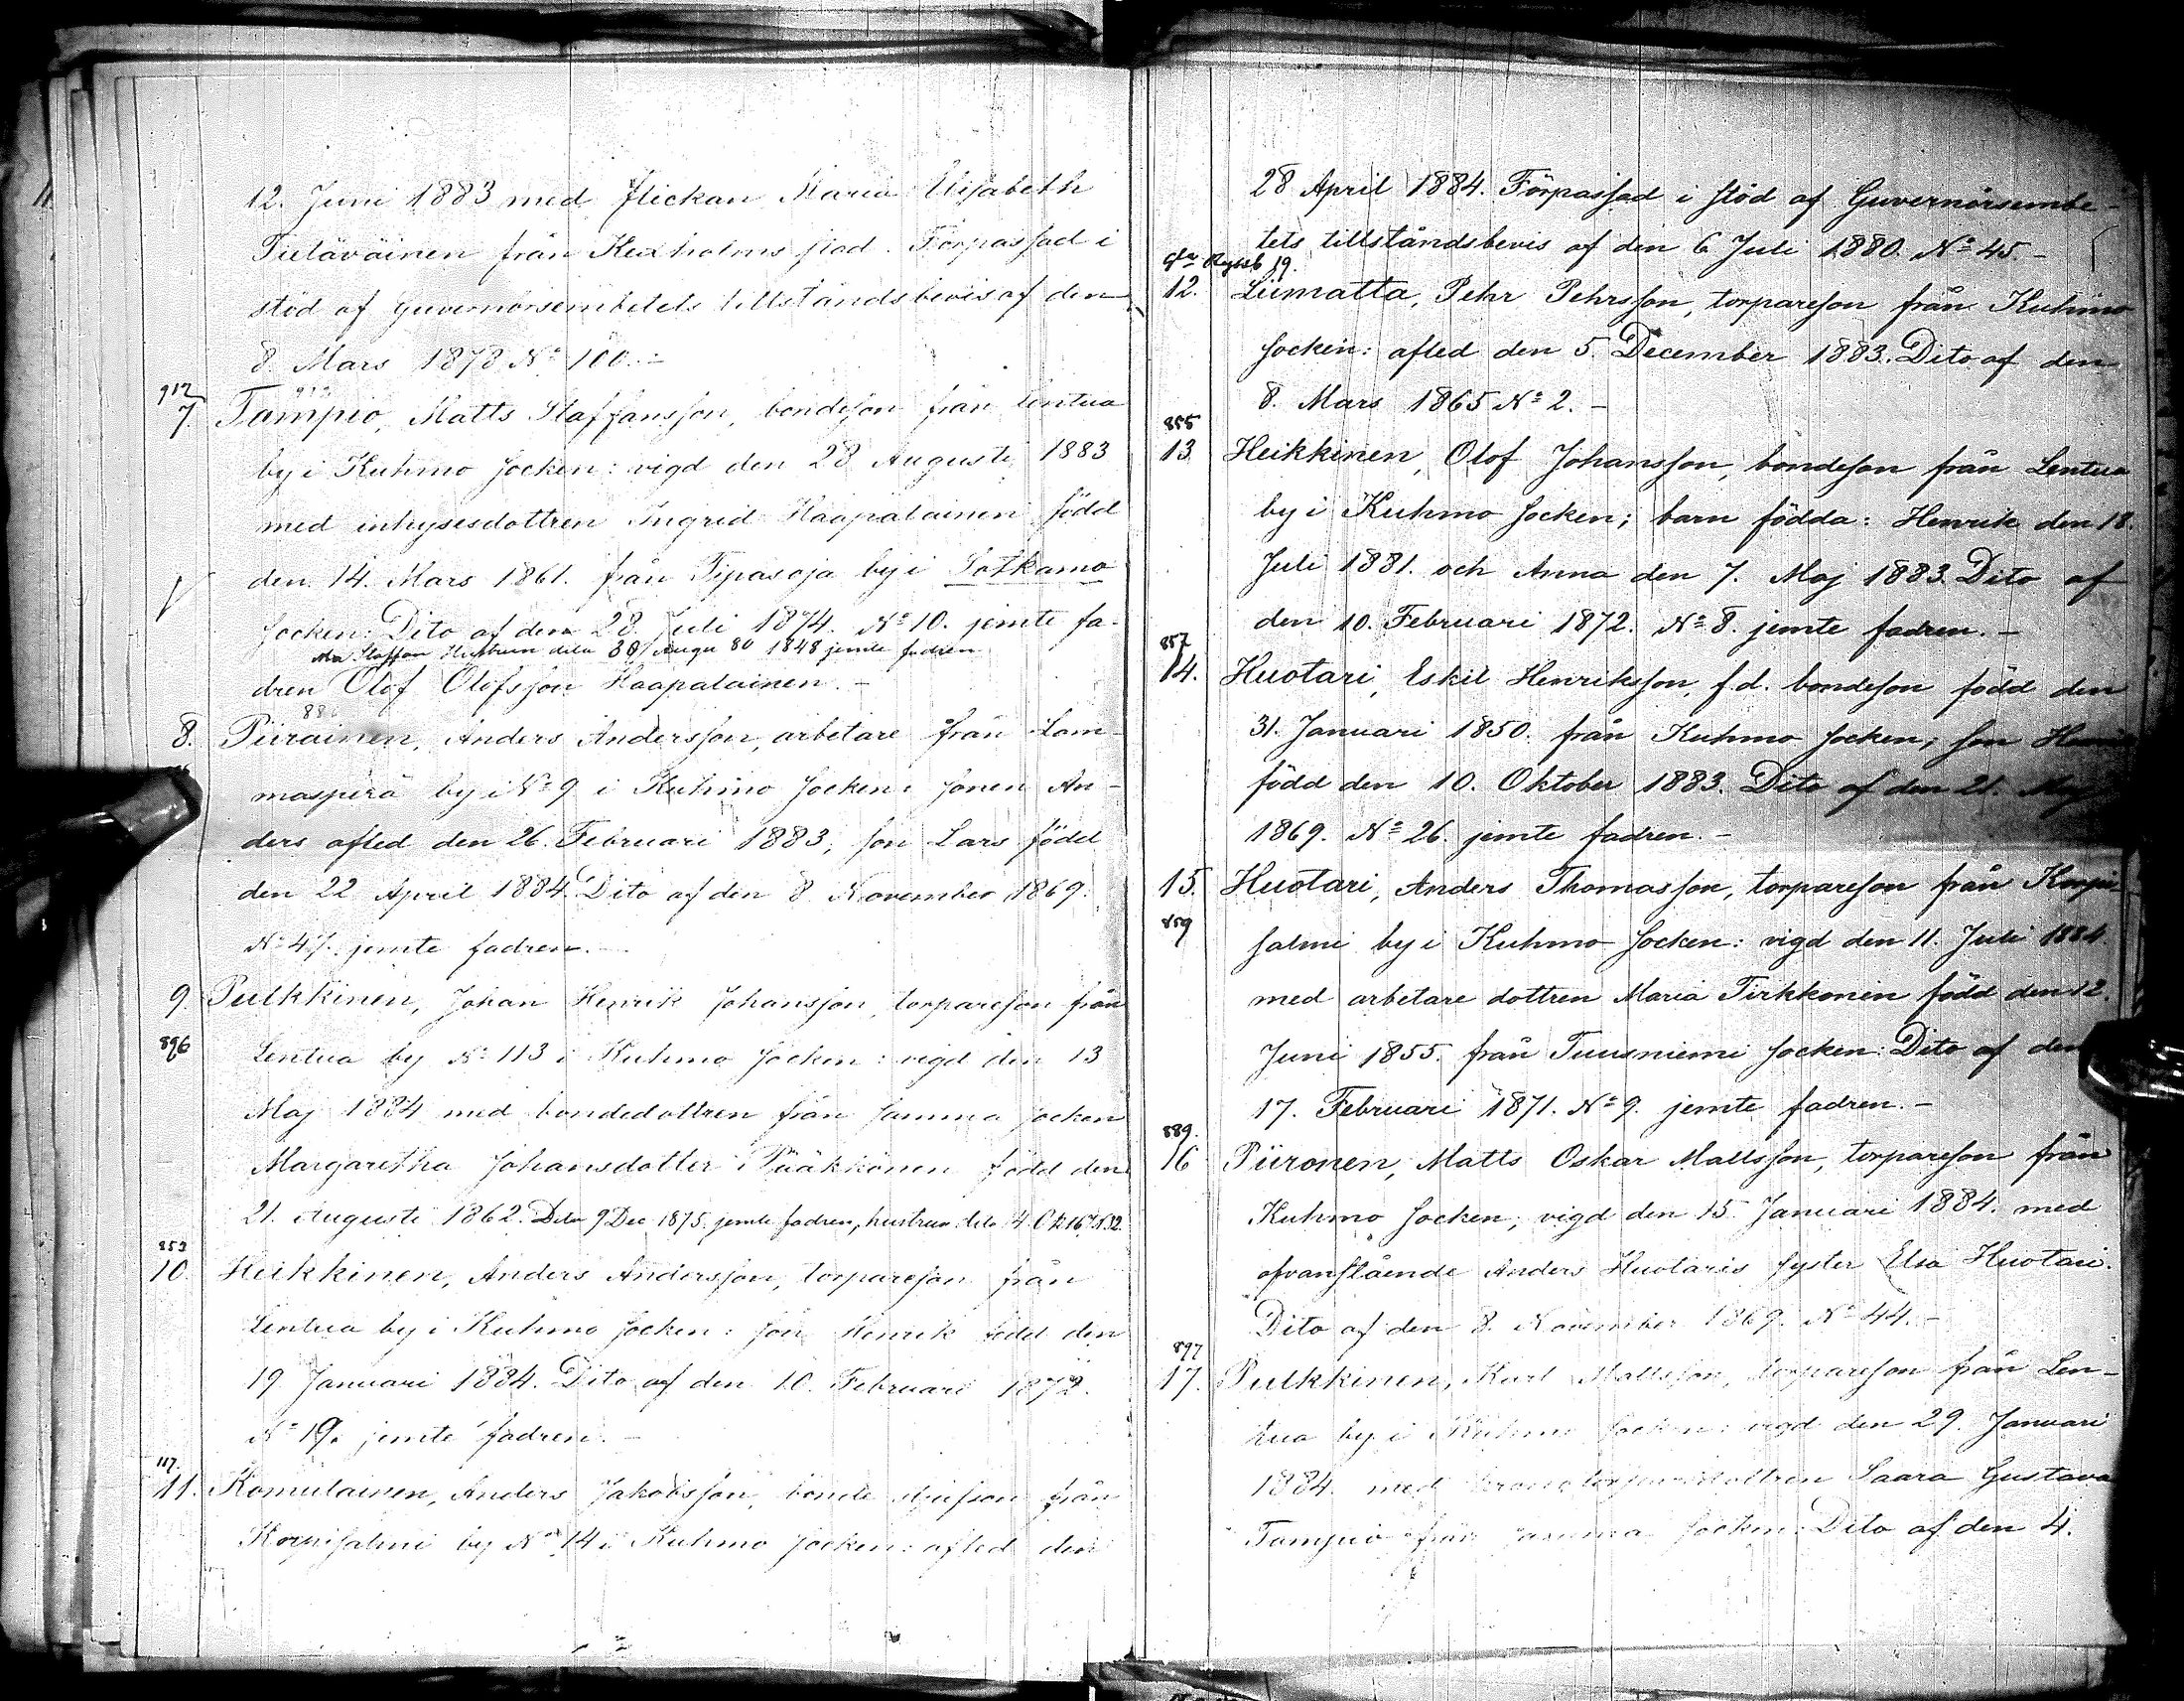 12. Juni 1883 med flickan Maria Elisabeth
Tieläväinen från Kexholms stad. Förpassad i
stöd af guvernörsembetets tillståndsbevis af den
8. Mars 1878 No 100.-
912
912
7. Tampio, Matts Staffansson, bondeson från Lentua
by i Kuhmo socken: vigd den 28 Augusti 1883
med inhysesdottren Ingrid Haapalainen född
den 14. Mars 1861. från Tipasoja by i Sotkamo
socken: Dito af den 28. Juli 1874. No 10. jemte fa-
Staffan Hustrun dito 30 Augu 80 1848 jemte fadren
dren Olof Olofsson Haapalainen.-
8. Piirainen, Anders Andersson, arbetare från Lam-
masperä by i No 9 i Kuhmo socken: sonen An-
ders afled den 26. Februari 1883, son Lars född
den 22 April 1884. Dito af den 8 November 1869.
No 47. jemte fadren.
9. Pulkkinen, Johan Henrik Johansson, torpareson från
896
Lentua by No 113 i Kuhmo socken: vigd den 13
Maj 1884 med bondedottren från samma socken
Margaretha Johansdotter Pääkkönen född den
21. Augusti 1862. Dito 9 Dec 1875. jemte fadren, hustrun dito 4 Okt
853
10. Heikkinen, Anders Andersson, torpareson från
Lentua by i Kuhmo socken: son Henrik född den
19 Januari 1884. Dito af den 10. Februari 1872.
No 19. jemte fadren.-
117.
11. Komulainen, Anders Jakobsson, bonde från
Korpisalmi by No 14 i Kuhmo socken: afled den
28 April 1884. Förpassad i stöd af Guvernörsembe-
tets tillståndsbevis af den 6 Juli 1880. No 45.-
19.
12. Liimatta, Pehr Pehrsson, torpareson från Kuhmo
socken: afled den 5. December 1883. Dito af den
8. Mars 1865 No 2.-
855
13 Heikkinen, Olof Johansson, bondeson från Lentua
by i Kuhmo socken; barn födda: Henrik den 18.
Juli 1881. och Anna den 7. Maj 1883. Dito af
den 10. Februari 1872. No 8. jemte fadren.-
857
14. Huotari, Eskil Henriksson, f.d. bondeson född den
31. Januari 1850. från Kuhmo socken; son
född den 10. Oktober 1883. Dito af den 21. Maj
1869. No 26. jemte fadren.-
15. Huotari, Anders Thomasson, torpareson från Korpi-
859
salmi by i Kuhmo socken: vigd den 11. Juli 1884.
med arbetare dottren Maria Tirkkonen född den 12.
Juni 1855. från Tuusniemi socken: Dito af den
17. Februari 1871. No 9. jemte fadren.-
889.
16 Piironen, Matts Oskar Mattsson, torpareson från
Kuhmo socken; vigd den 15 Januari 1884. med
ofvanstående Anders Huotaris syster Elsa Huotari.
Dito af den 8. November 1869. No 44.-
897
17. Pulkkinen, Karl Mattsson, torpareson från Len-
tua by i Kuhmo socken: vigd den 29. Januari
1884. med Saara Gustava
Tampio från samma socken: Dito af den 4.